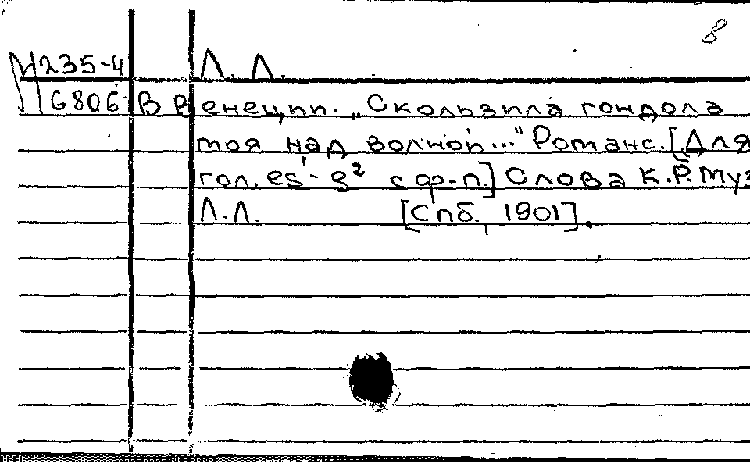 8
М 235-4 Л. Л.
6806 В Венеции. „Скользила гондола
моя над волной..." Романс. [Для
гол. es¹-g² с ф-п.] Слова К.Р. Муз
Л.Л. [Спб., 1901].